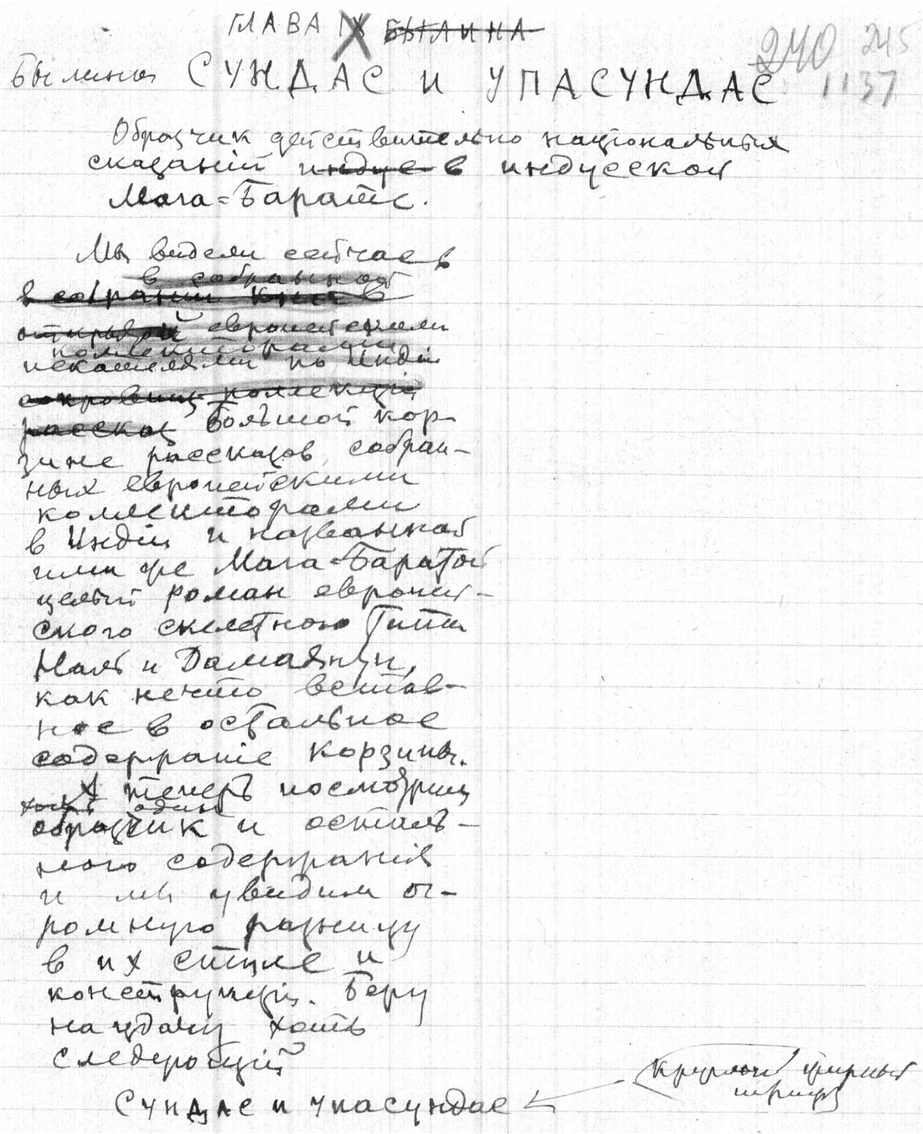 ГЛАВА IX БЫЛИНА
240 245
1137
Былина СУНДАС И УПАСУНДАС
Образчик действительно национальных
сказаній индус в индусской
Мага=Барате.
Мы видели сейчас в
в собранной
в собраніи
европейскими
коллекторами
искателями по Индіи
сокровищ коллекціи
рассказ большой кор-
зине рассказов, собран-
ных европейскими
коллекторами
в Индіи и названной
ими же Мага=Баратой
целый роман европей-
ского скелетного типа
Наль и Дамаянти,
как нечто встав-
ное в остальное
содержаніе корзины.
А теперь посмотрим
хоть один
образчик и осталь-
ного содержанія
и мы увидим ог-
ромную разницу
в их стиле и
конструкціи. Беру
наудачу хоть
следующій
Сундас и Упасундас
Круглый жирный
шрифт